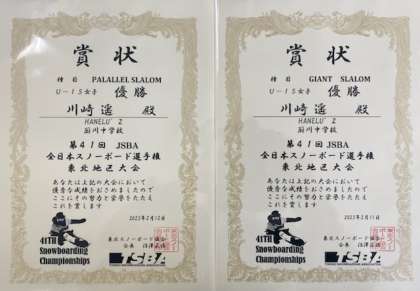 賞状
種目 PALALLEL SLALOM
U-15女子 優勝
川崎遥 殿
HANELU' Z
厨川中学校
第41回 JSBA
全日本スノーボード選手権
東北地区大会
あなたは上記の大会において
優秀な成績をおさめましたので
ここにその努力と栄誉をたたえ
これを賞します
2023年2月10日
東北スノーボード協会
会長
41TH
Snowboarding
Championships
TSBA
賞状
種目 GIANT SLALOM
U-15女子 優勝
川崎遥 殿
HANELU' Z
厨川中学校
第41回 JSBA
全日本スノーボード選手権
東北地区大会
あなたは上記の大会において
優秀な成績をおさめましたので
ここにその努力と栄誉をたたえ
これを賞します
2023年2月11日
東北スノーボード協会
会長
41TH
Snowboarding
Championships
TSBA